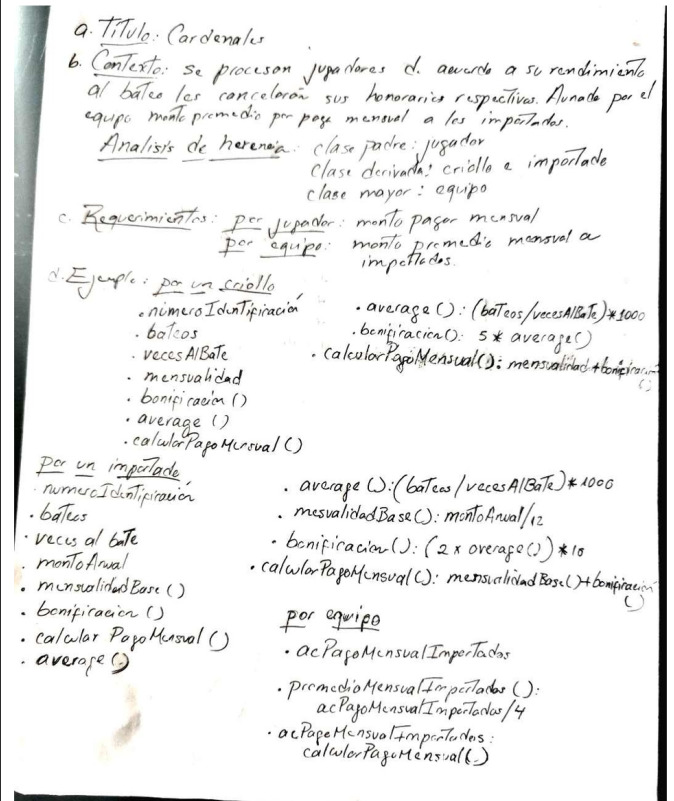 a. Título: Cardenales
b. Contexto: se procesan jugadores d. acuerdo a su rendimiento
al bateo les cancelarán sus honorarios respectivos. Aunado por el
equipo monto promedio por pago mensual a los importados.
Analisis de herencia: clase padre: jugador
clase derivada: criollo e importado
clase mayor: equipo
c. Requerimientos: por jugador: monto pagar mensual
por equipo: monto promedio mensual a
importados.
d. Ejemplo: por un criollo
• número Identificación
• bateos
• veces AlBate
• mensualidad
• bonificación ()
• average ()
• calcularPagoMensual ()
• average (): (bateos/vecesAlBate)*1000
• bonificacion(): 5 * average()
• calcularPagoMensual(): mensualidad + bonificación
()
por un importado
• numeroIdentificación
• bateos
• veces al bate
• montoAnual
• mensualidadBase ()
• bonificacion ()
• calcular PagoMensual ()
• average ()
• average (): (bateos/vecesAlBate)*1000
• mesualidadBase(): montoAnual/12
• bonificacion(): (2 x average()) *10
• calcularPagoMensual(): mensualidadBase()+bonificación
()
por equipo
• acPagoMensualImportados
• promedioMensualImportados ():
acPagoMensualImportados/4
• acPagoMensualImportados:
calcularPagoMensual()